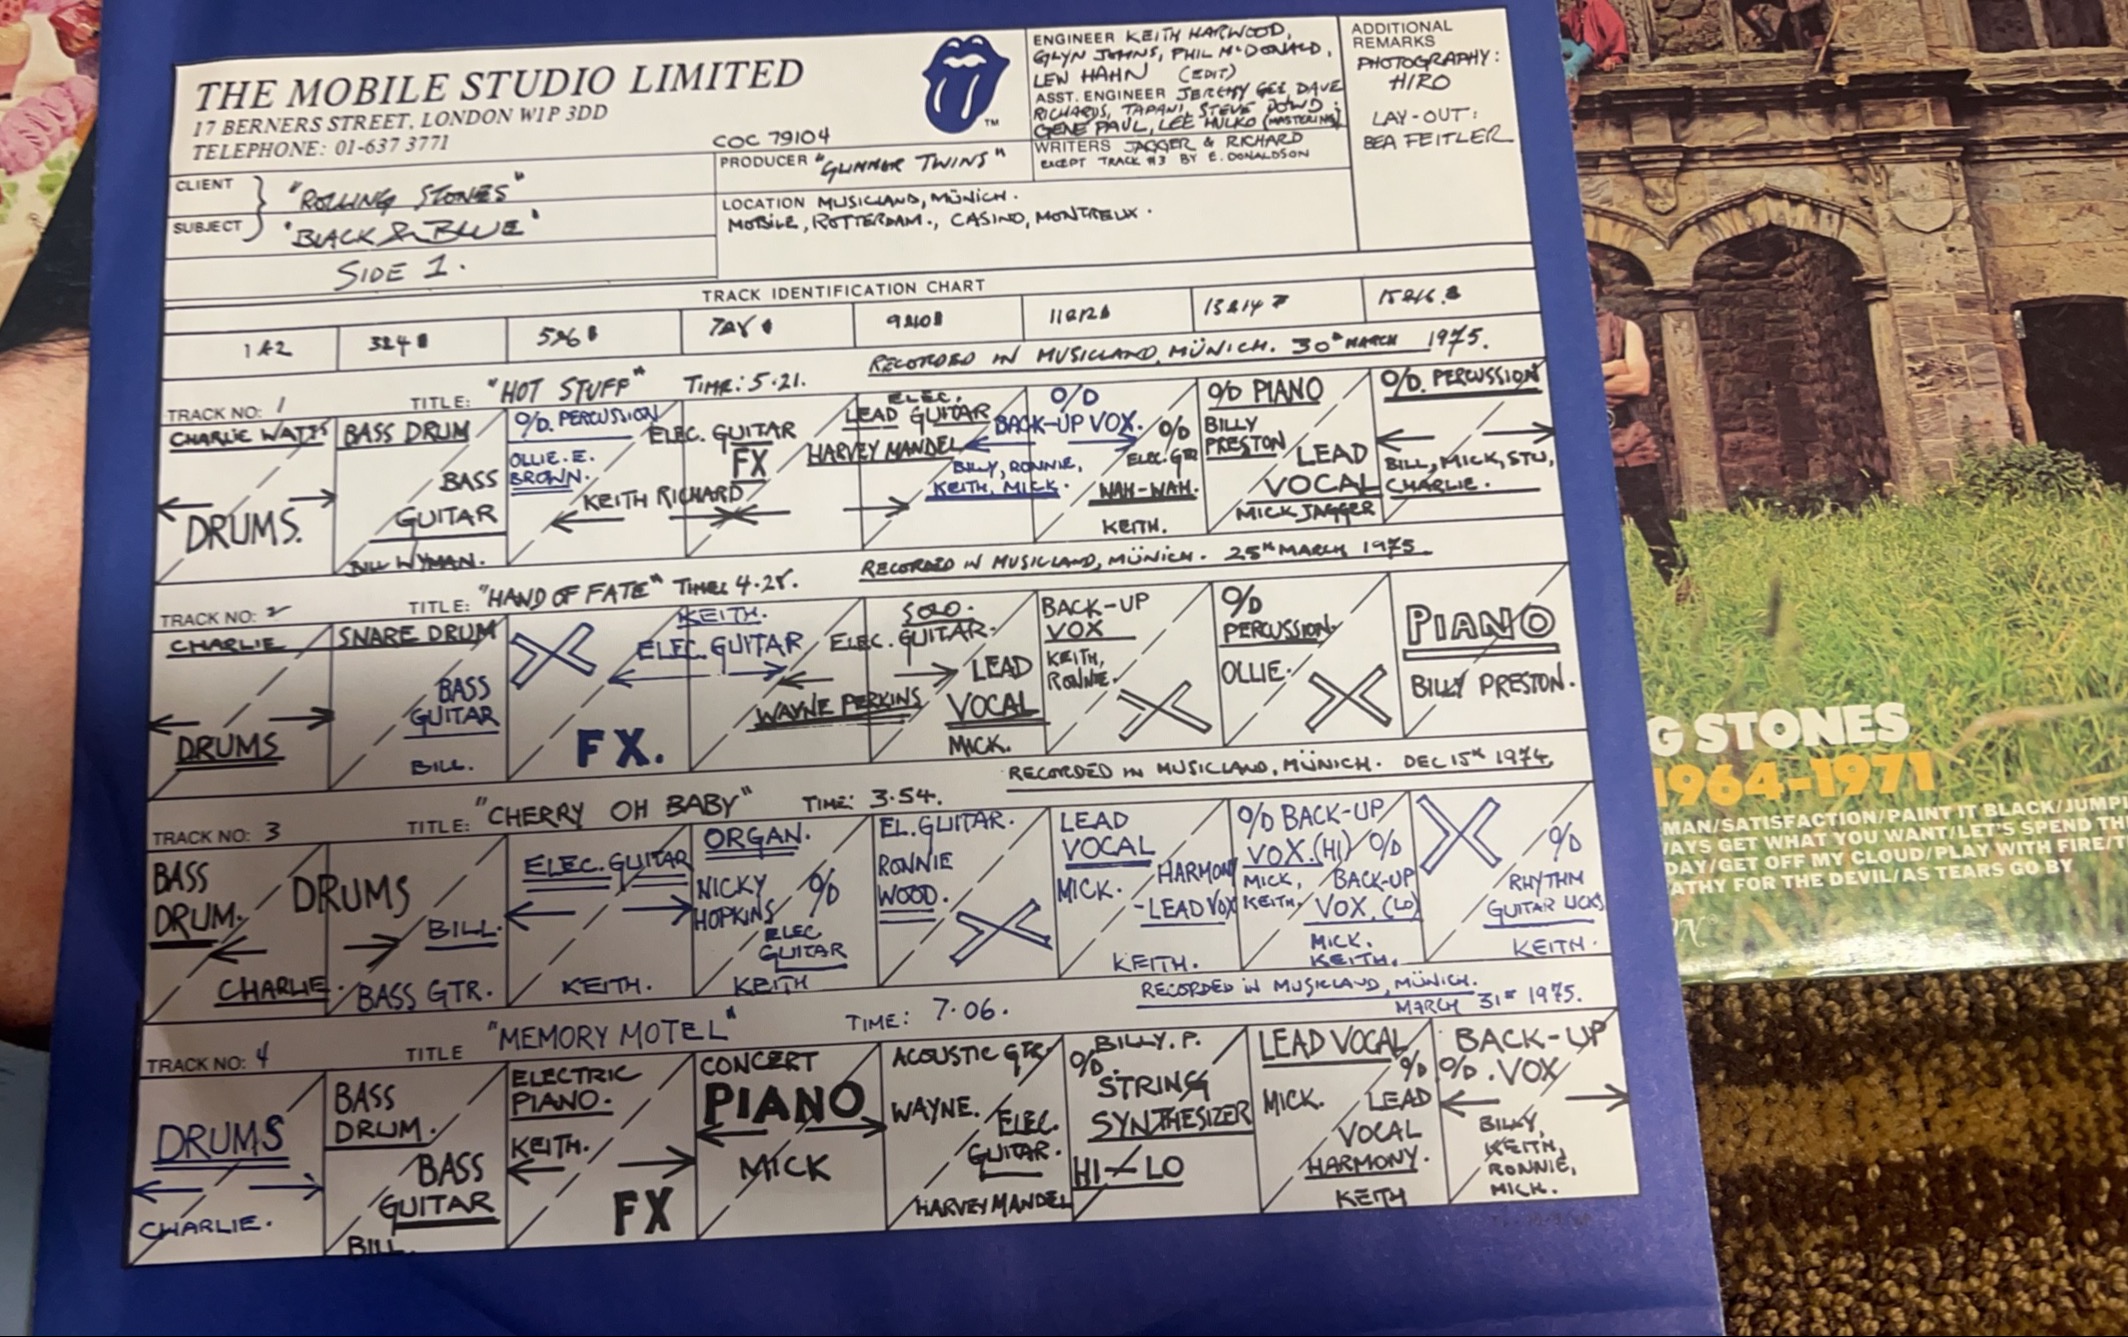 THE MOBILE STUDIO LIMITED
17 BERNERS STREET, LONDON W1P 3DD
TELEPHONE: 01-637 3771
COC 79104
TM
ENGINEER KEITH HARWOOD,
GLYN JOHNS, PHIL McDONALD,
LEW HAHN (EDIT)
ASST. ENGINEER JEREMY GEE, DAVE
RICHARDS, TAPANI, STEVE DOWD;
GENE PAUL, LEE HULKO (MASTERING)
WRITERS JAGGER & RICHARD
EXCEPT TRACK #3 BY E. DONALDSON
ADDITIONAL
REMARKS
PHOTOGRAPHY:
HIRO
LAY-OUT:
BEA FEITLER
CLIENT
"ROLLING STONES"
SUBJECT
'BLACK & BLUE'
SIDE 1.
PRODUCER "GLIMMER TWINS"
LOCATION MUSICLAND, MÜNICH.
MOBILE, ROTTERDAM., CASINO, MONTREUX.
TRACK IDENTIFICATION CHART
1&2 3&4 5&6 7&8 9&10 11&12 13&14 15&16
RECORDED IN MUSICLAND, MÜNICH. 30th MARCH 1975.
TRACK NO: 1 TITLE: "HOT STUFF" TIME: 5·21.
CHARLIE WATTS
DRUMS.
BASS DRUM
BASS
GUITAR
BILL WYMAN.
O/D. PERCUSSION
OLLIE. E.
BROWN.
KEITH RICHARD
ELEC. GUITAR
FX
ELEC.
LEAD GUITAR
HARVEY MANDEL
O/D
BACK-UP VOX.
BILLY, RONNIE,
KEITH, MICK.
O/D
ELEC. GTR
WAH-WAH.
KEITH.
O/D PIANO
BILLY
PRESTON
LEAD
VOCAL
MICK JAGGER
O/D. PERCUSSION
BILL, MICK, STU,
CHARLIE.
RECORDED IN MUSICLAND, MÜNICH. 25th MARCH 1975.
TRACK NO: 2 TITLE: "HAND OF FATE" TIME: 4·28.
CHARLIE
DRUMS
SNARE DRUM
BASS
GUITAR
BILL.
KEITH.
ELEC. GUITAR
FX.
SOLO.
ELEC. GUITAR.
WAYNE PERKINS
LEAD
VOCAL
MICK.
BACK-UP
VOX
KEITH,
RONNIE.
O/D
PERCUSSION.
OLLIE.
PIANO
BILLY PRESTON.
RECORDED IN MUSICLAND, MÜNICH. DEC 15th 1974.
TRACK NO: 3 TITLE: "CHERRY OH BABY" TIME: 3·54.
BASS
DRUM.
CHARLIE.
DRUMS
BILL.
BASS GTR.
ELEC. GUITAR
KEITH.
ORGAN.
NICKY
HOPKINS
O/D
ELEC
GUITAR
KEITH
EL. GUITAR.
RONNIE
WOOD.
LEAD
VOCAL
MICK.
HARMONY
-LEAD VOX
KEITH.
O/D BACK-UP
VOX. (HI)
MICK,
KEITH.
O/D
BACK-UP
VOX. (LO)
MICK.
KEITH.
O/D
RHYTHM
GUITAR LICKS
KEITH.
RECORDED IN MUSICLAND, MÜNICH.
MARCH 31st 1975.
TRACK NO: 4 TITLE "MEMORY MOTEL" TIME: 7·06.
DRUMS
CHARLIE.
BASS
DRUM.
BASS
GUITAR
BILL.
ELECTRIC
PIANO.
KEITH.
FX
CONCERT
PIANO
MICK
ACOUSTIC GTR.
WAYNE.
ELEC.
GUITAR.
HARVEY MANDEL
BILLY. P.
O/D.
STRING
SYNTHESIZER
HI-LO
LEAD VOCAL
MICK.
O/D
LEAD
VOCAL
HARMONY.
KEITH
BACK-UP
O/D. VOX
BILLY,
KEITH,
RONNIE,
MICK.
G STONES
1964-1971
MAN/SATISFACTION/PAINT IT BLACK/JUMP
AYS GET WHAT YOU WANT/LET'S SPEND TH
DAY/GET OFF MY CLOUD/PLAY WITH FIRE/T
ATHY FOR THE DEVIL/AS TEARS GO BY